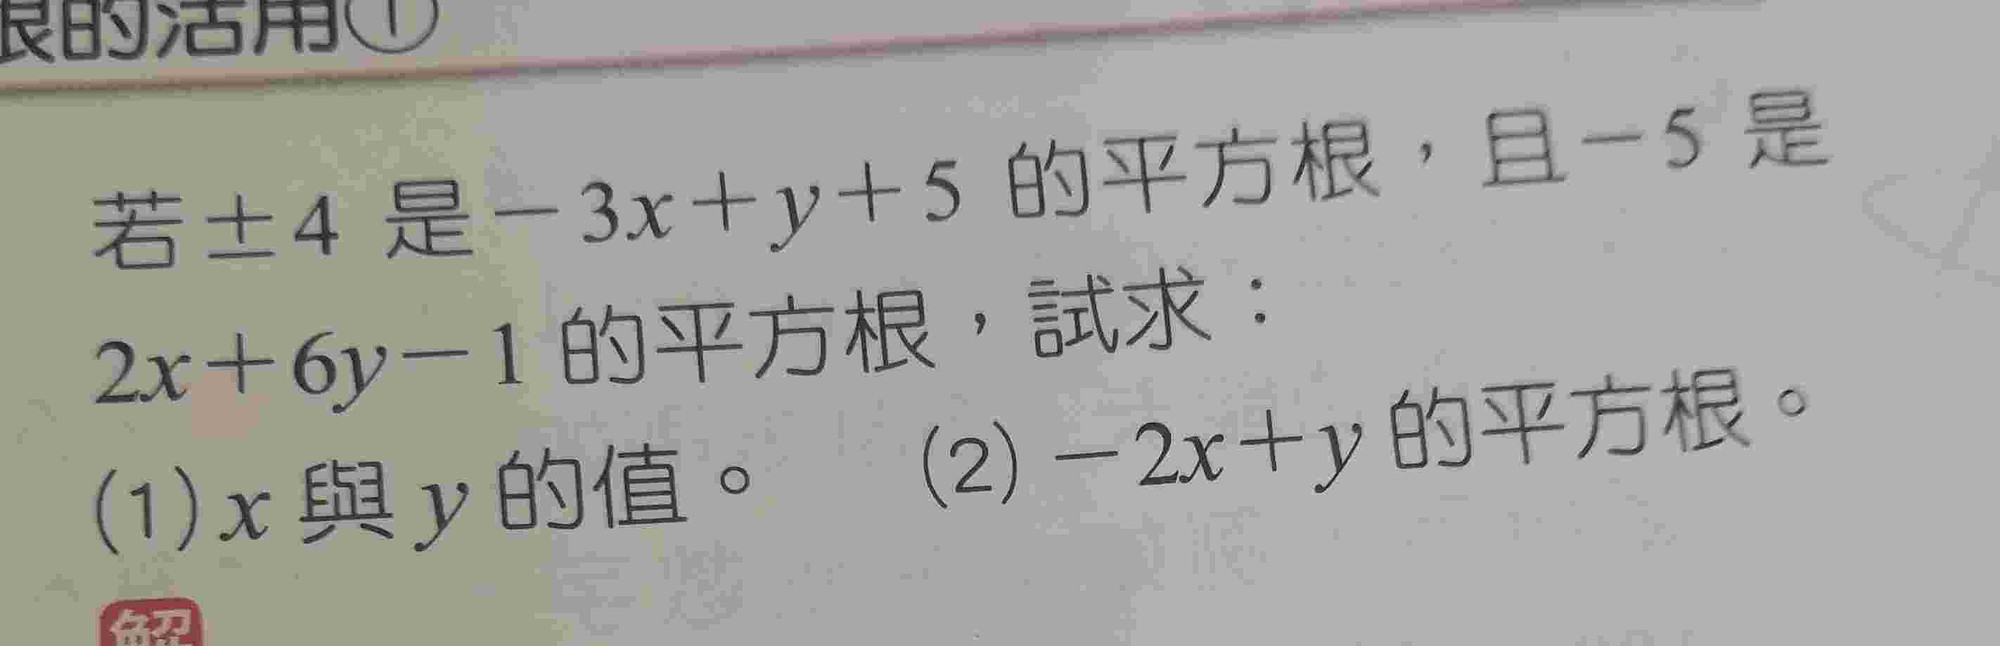 根的活用①
若±4 是−3x+y+5 的平方根，且−5 是
2x+6y−1 的平方根，試求：
(1) x 與 y 的值。 (2) −2x+y 的平方根。
解